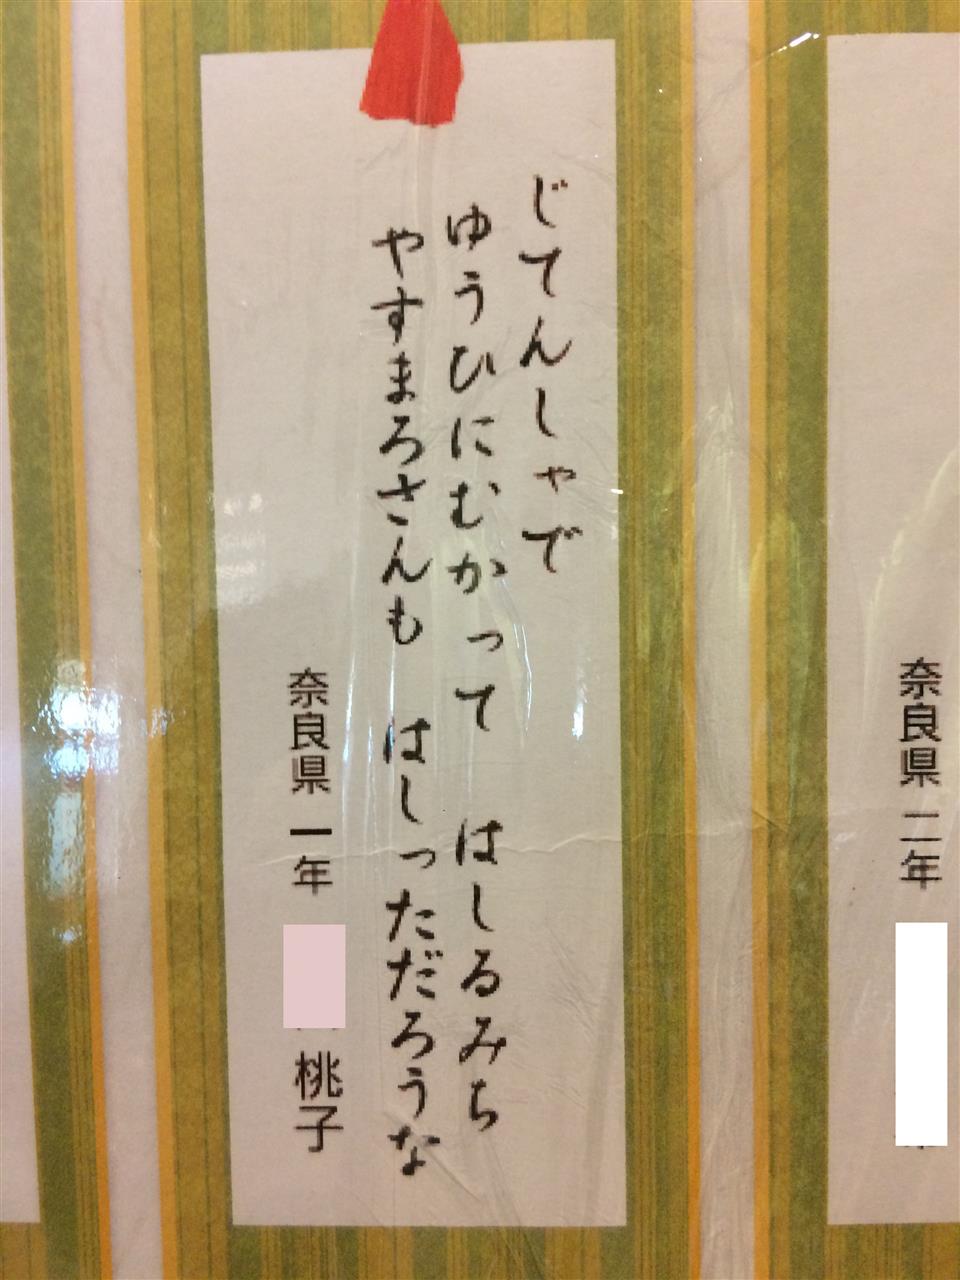 じてんしゃで
ゆうひにむかって はしるみち
やすまろさんも はしっただろうな
奈良県 一年 桃子
奈良県 二年